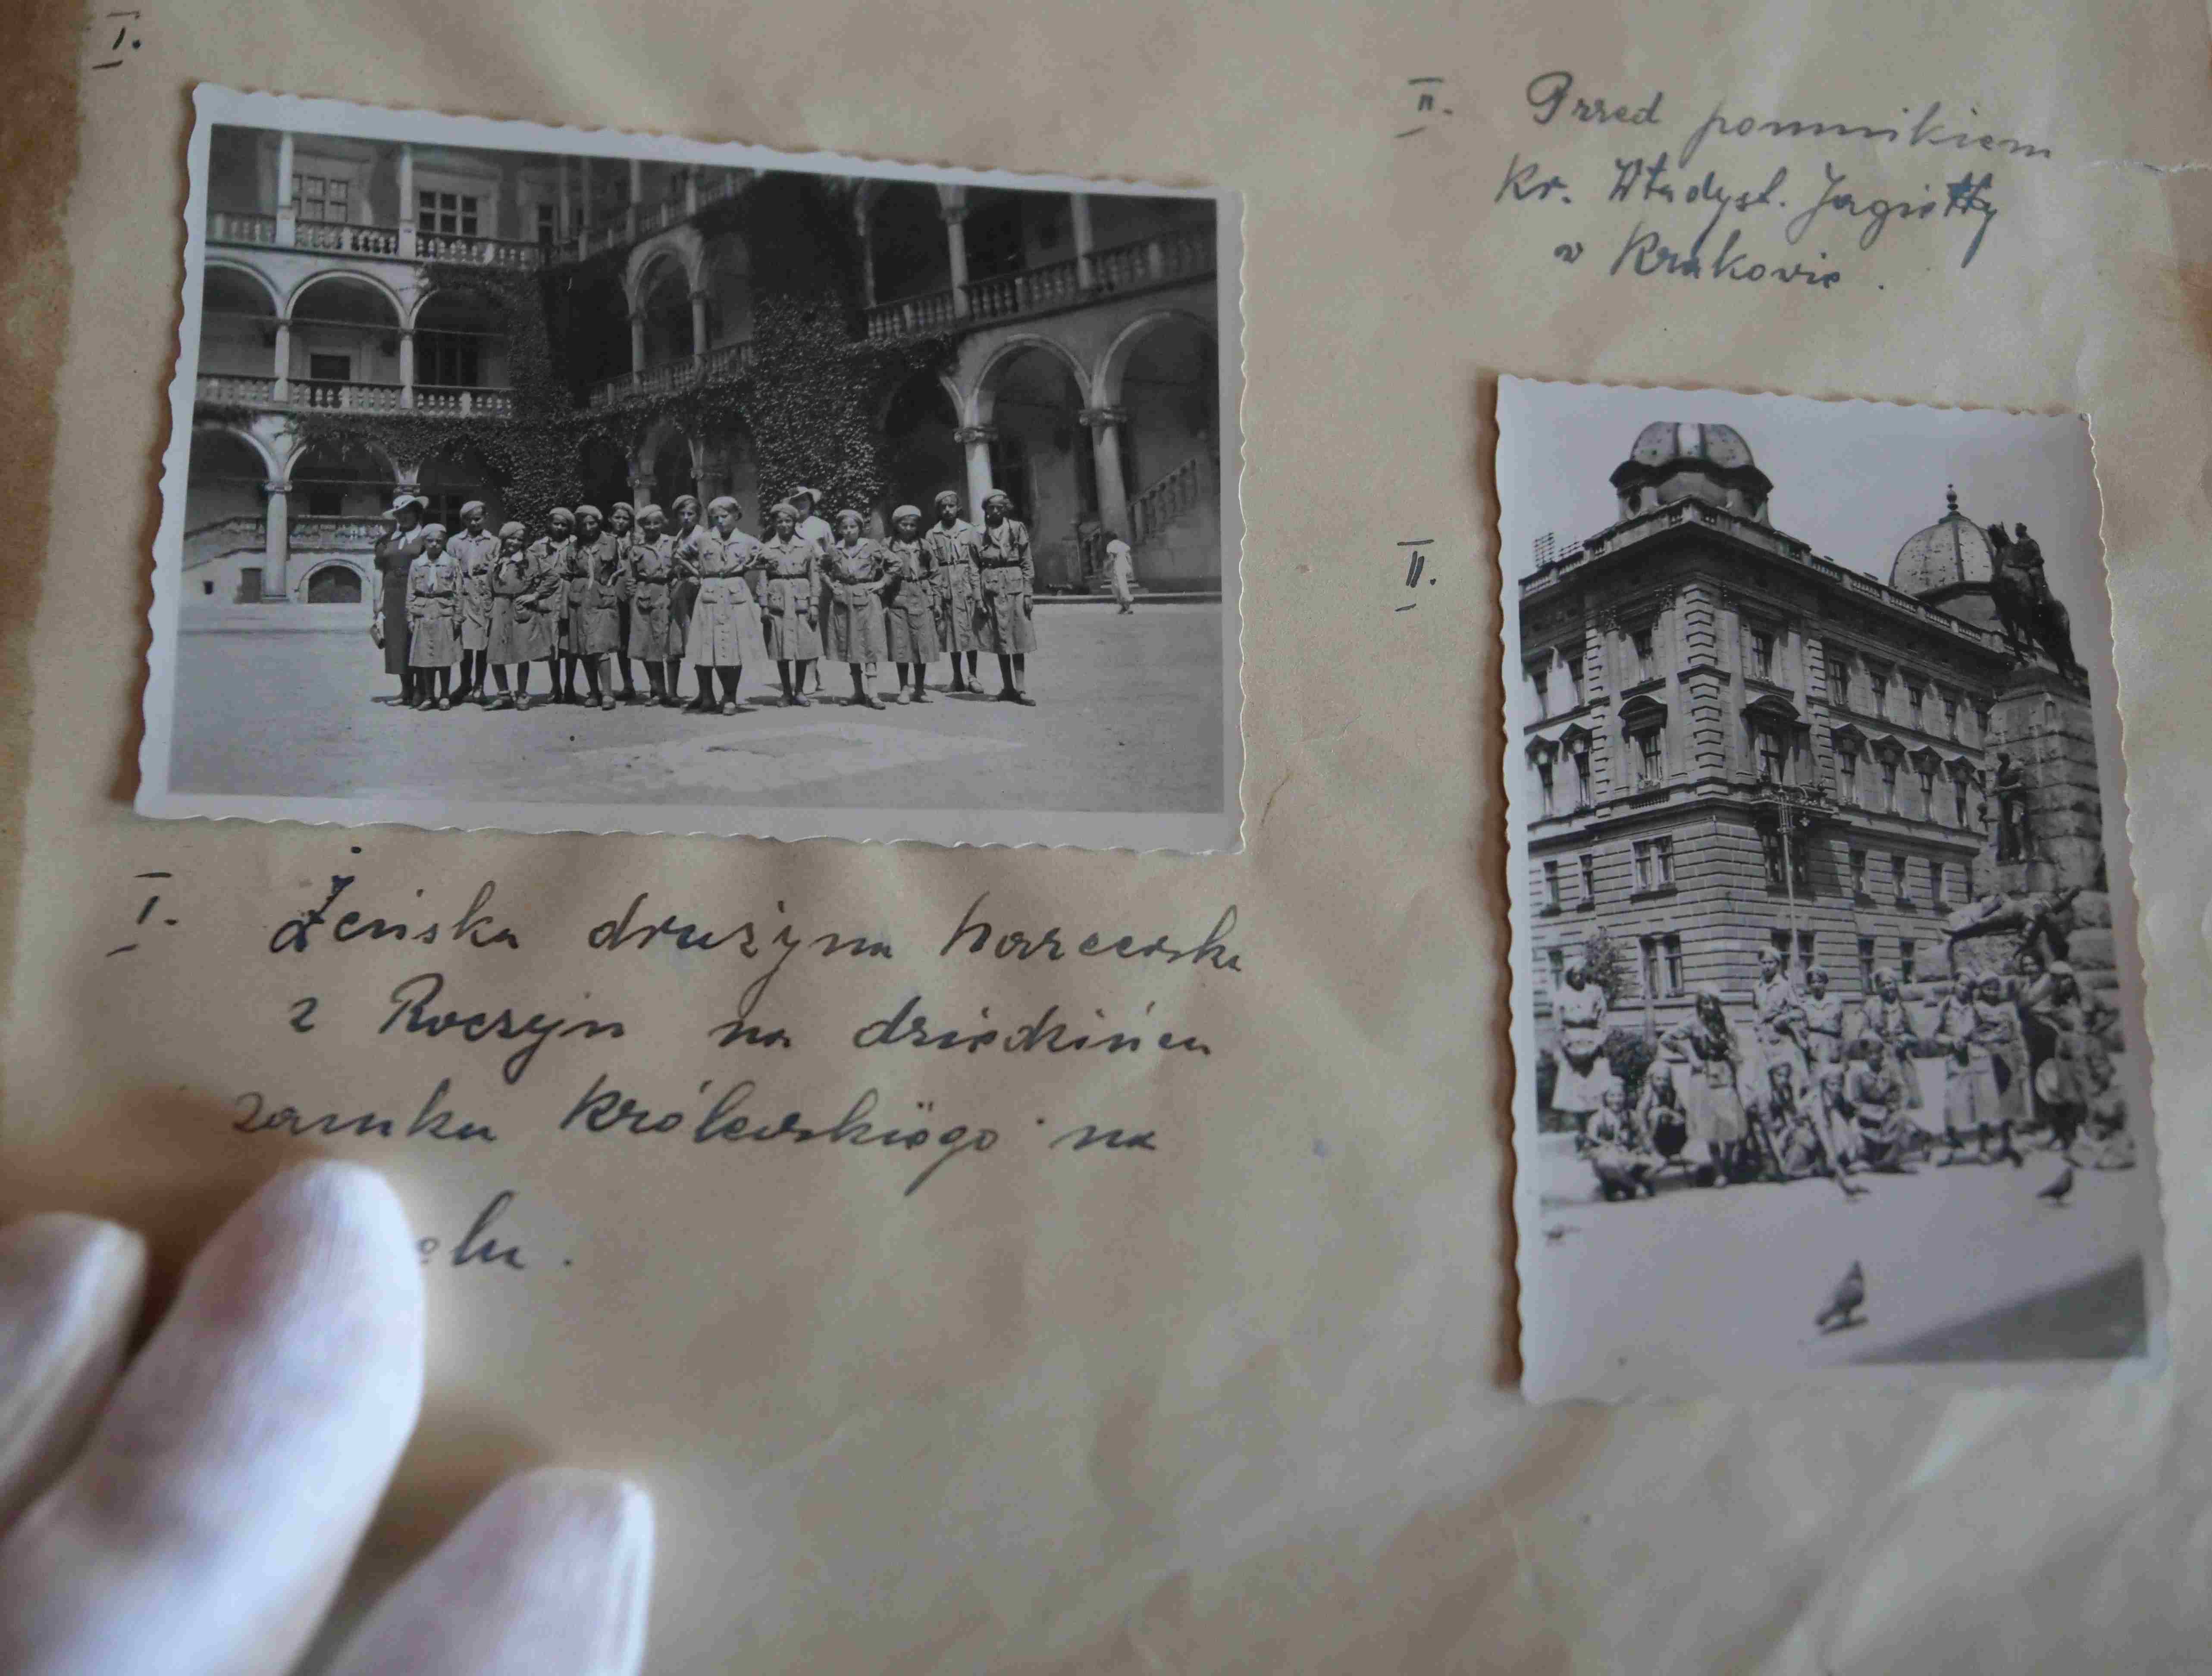 I.
I. Żeńska drużyna harcerska
z Roczyn na dziedzińcu
zamku Królewskiego na
elu.
II. Przed pomnikiem
Kr. Władysł. Jagiełły
w Krakowie.
II.